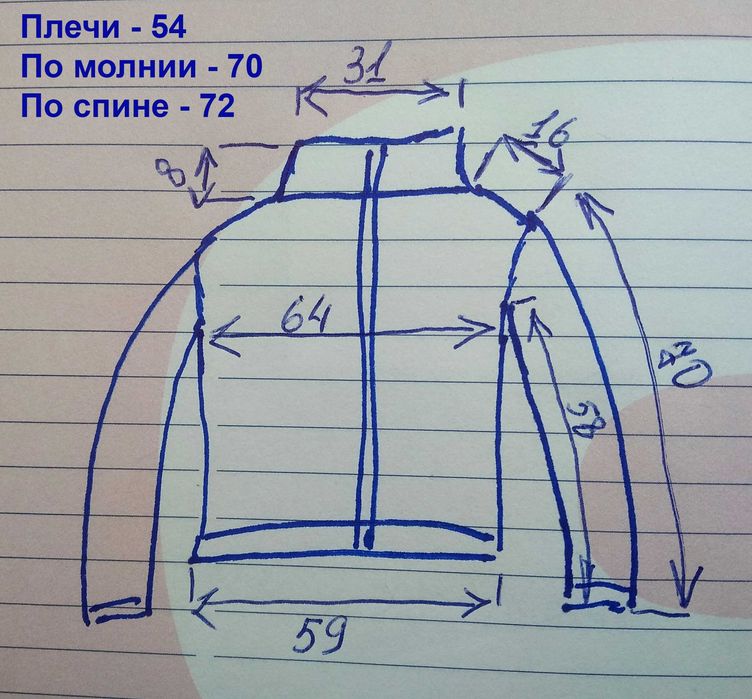 Плечи - 54
По молнии - 70
По спине - 72
31
16
8
64
70
58
59